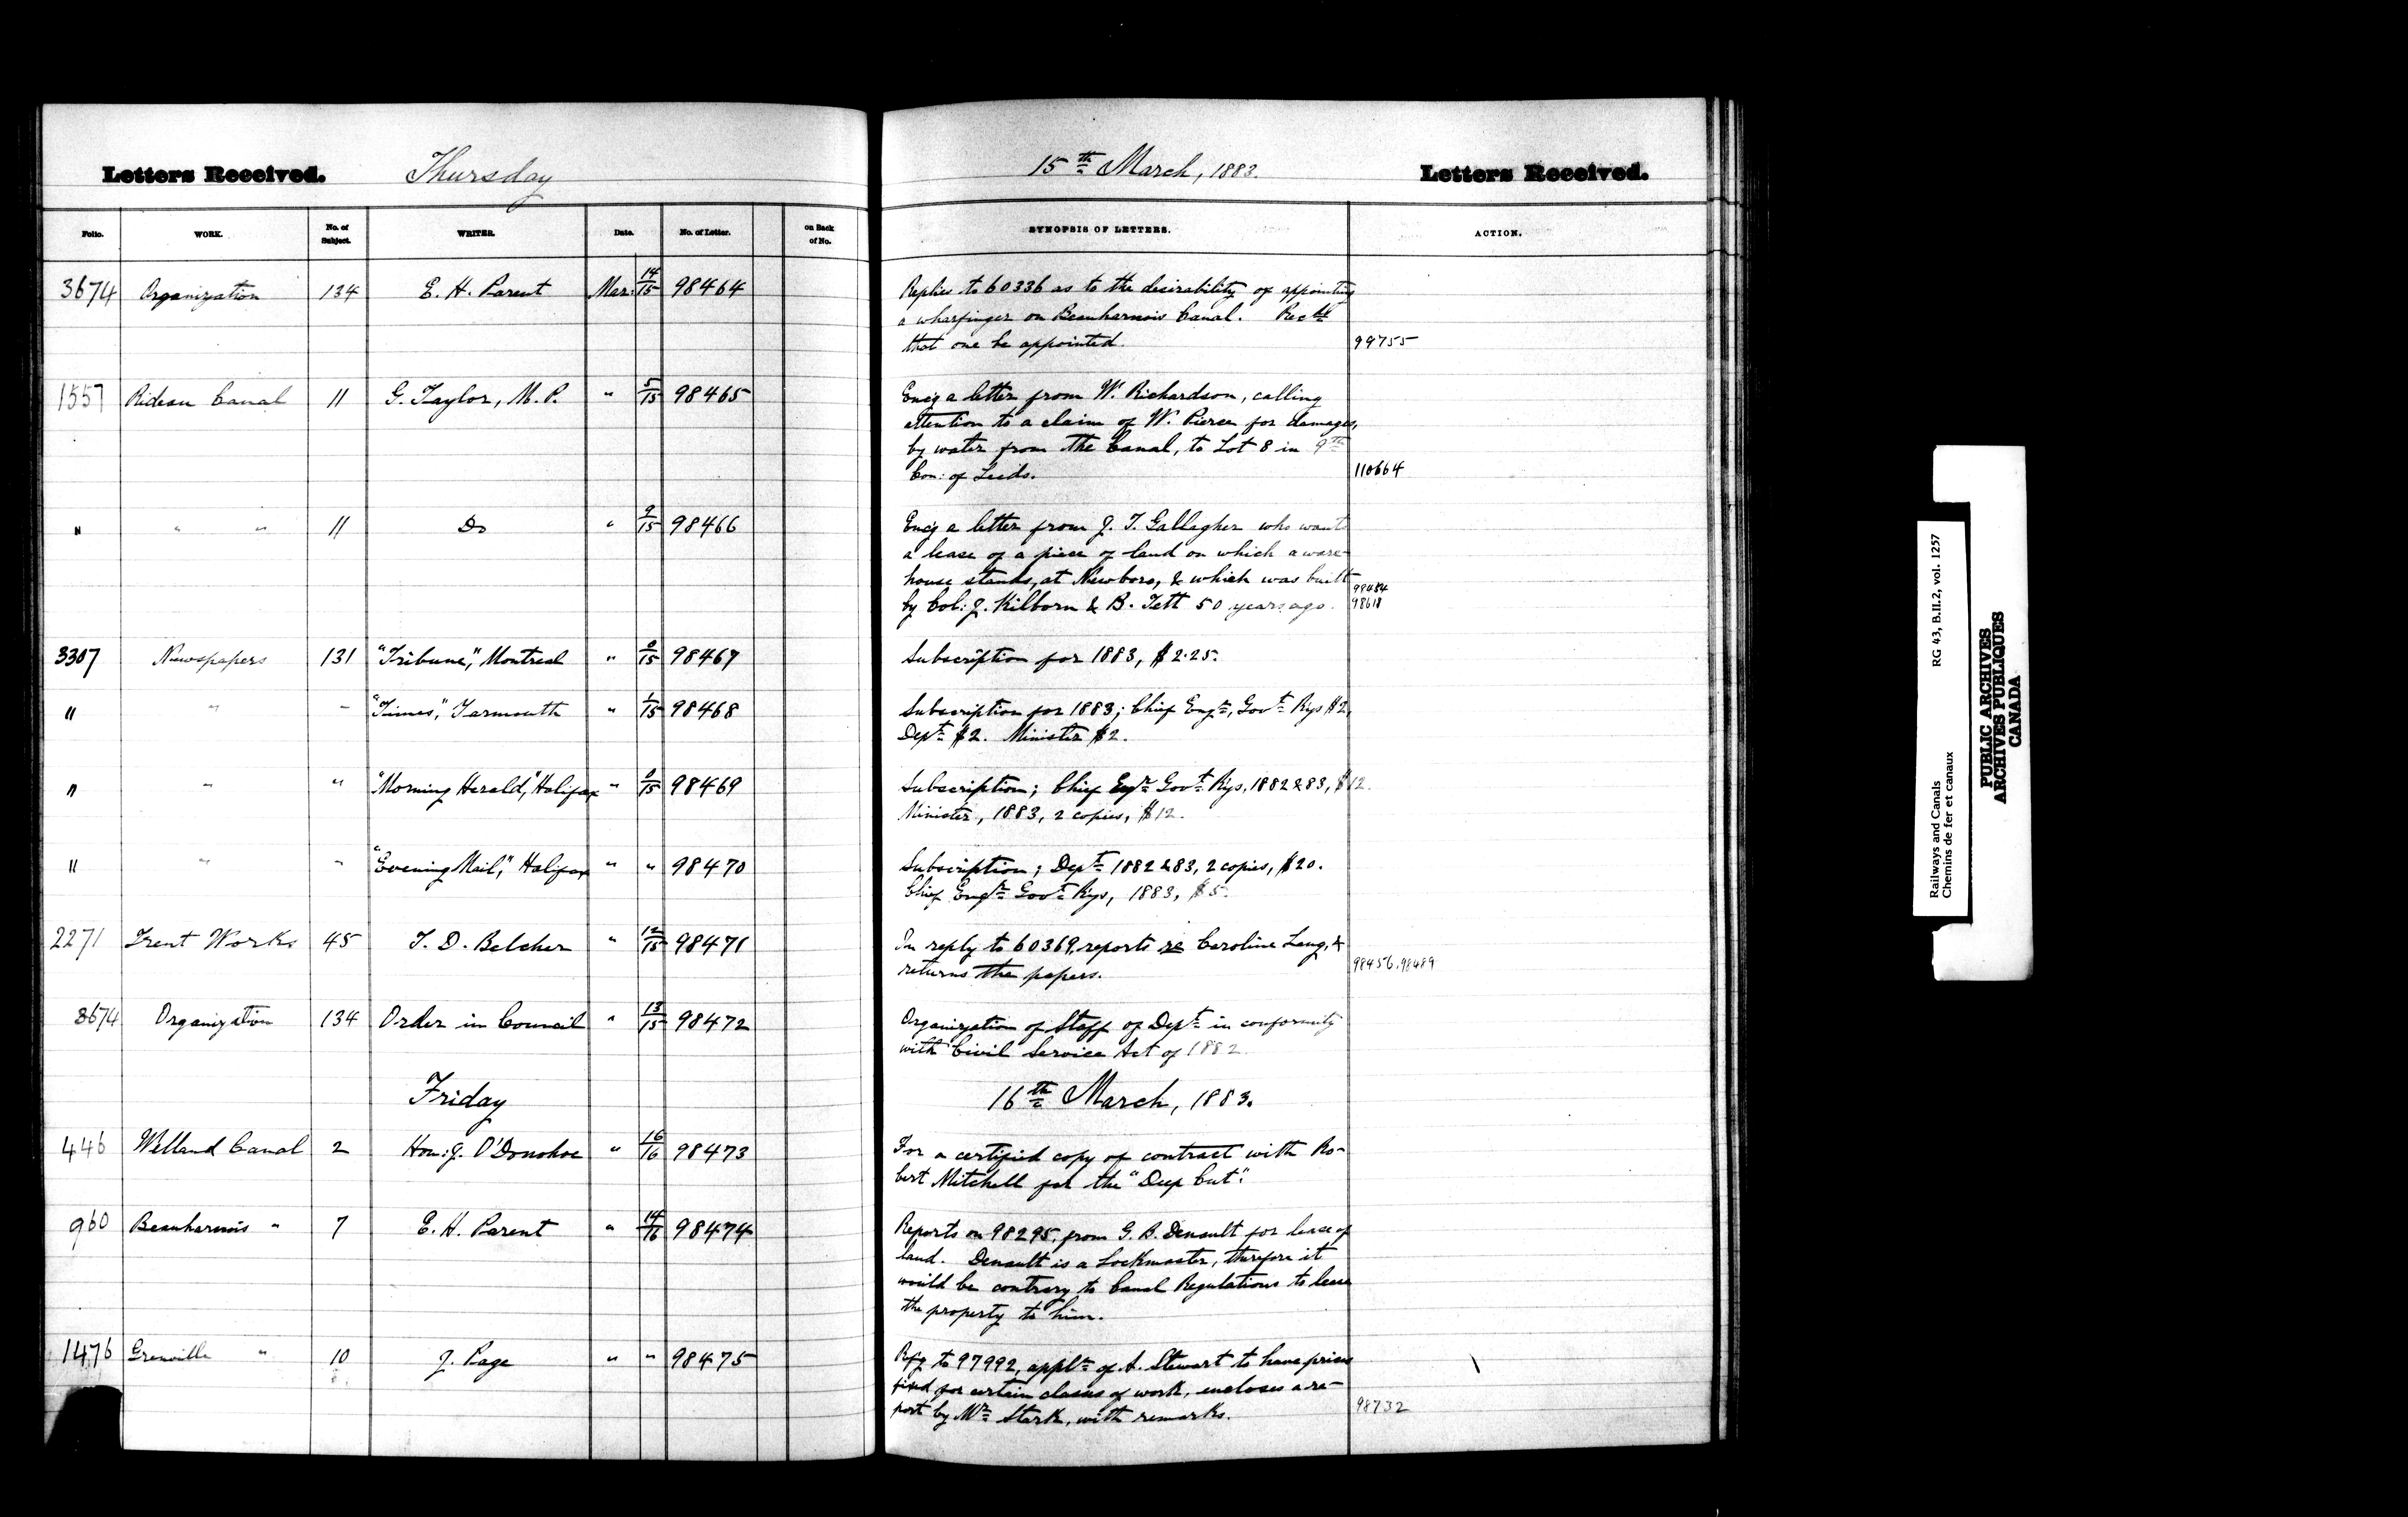 Letters Received. Thursday
15th March, 1883. Letters Received.
Folio. WORK. No. of Subject. WRITER. Date. No. of Letter. on Back of No.
SYNOPSIS OF LETTERS. ACTION.
3674 Organization 134 E. H. Parent Mar: 14/15 98464
Replies to 60336 as to the desirability of appointing
a wharfinger on Beauharnois Canal. Recds
that one be appointed. 99755
1557 Rideau Canal 11 G. Taylor, M.P. " 5/15 98465
Encg a letter from W. Richardson, calling
attention to a claim of W. Pierce for damages,
by water from the Canal, to Lot 8 in 9th
Con: of Leeds. 110664
" " " 11 Do " 9/15 98466
Encg a letter from J. T. Gallagher who wants
a lease of a piece of land on which a ware-
house stands, at Newboro, & which was built
by Col: J. Kilborn & B. Tett 50 years ago. 98484
98618
3307 Newspapers 131 "Tribune," Montreal " 2/15 98467
Subscription for 1883, $2.25.
" " " "Times," Yarmouth " 1/15 98468
Subscription for 1883; Chief Engr, Govt Rys $2,
Dept $2. Minister $2.
" " " "Morning Herald," Halifax " 2/15 98469
Subscription; Chief Engr Govt Rys, 1882 & 83, $12.
Minister, 1883, 2 copies, $12.
" " " "Evening Mail," Halifax " " 98470
Subscription; Dept 1882 & 83, 2 copies, $20.
Chief Engr Govt Rys, 1883, $5.
2271 Trent Works 45 T. D. Belcher " 12/15 98471
In reply to 60369, reports re Caroline Lang, &
returns the papers. 98456, 98489
3674 Organization 134 Order in Council " 13/15 98472
Organization of Staff of Dept in conformity
with Civil Service Act of 1882
Friday
16th March, 1883.
446 Welland Canal 2 Hon: J. O'Donohoe " 16/16 98473
For a certified copy of contract with Ro-
bert Mitchell for the "Deep Cut".
960 Beauharnois " 7 E. H. Parent " 14/16 98474
Reports on 98295, from G. B. Denault for lease of
land. Denault is a Lockmaster, therefore it
would be contrary to Canal Regulations to lease
the property to him.
1476 Grenville " 10 J. Page " " 98475
Rfg to 97992, appln of A. Stewart to have prices
fixed for certain classes of work, encloses a re-
port by Mr Stark, with remarks. 98732
Railways and Canals RG 43, B.II.2, vol. 1257
Chemins de fer et canaux
PUBLIC ARCHIVES
ARCHIVES PUBLIQUES
CANADA